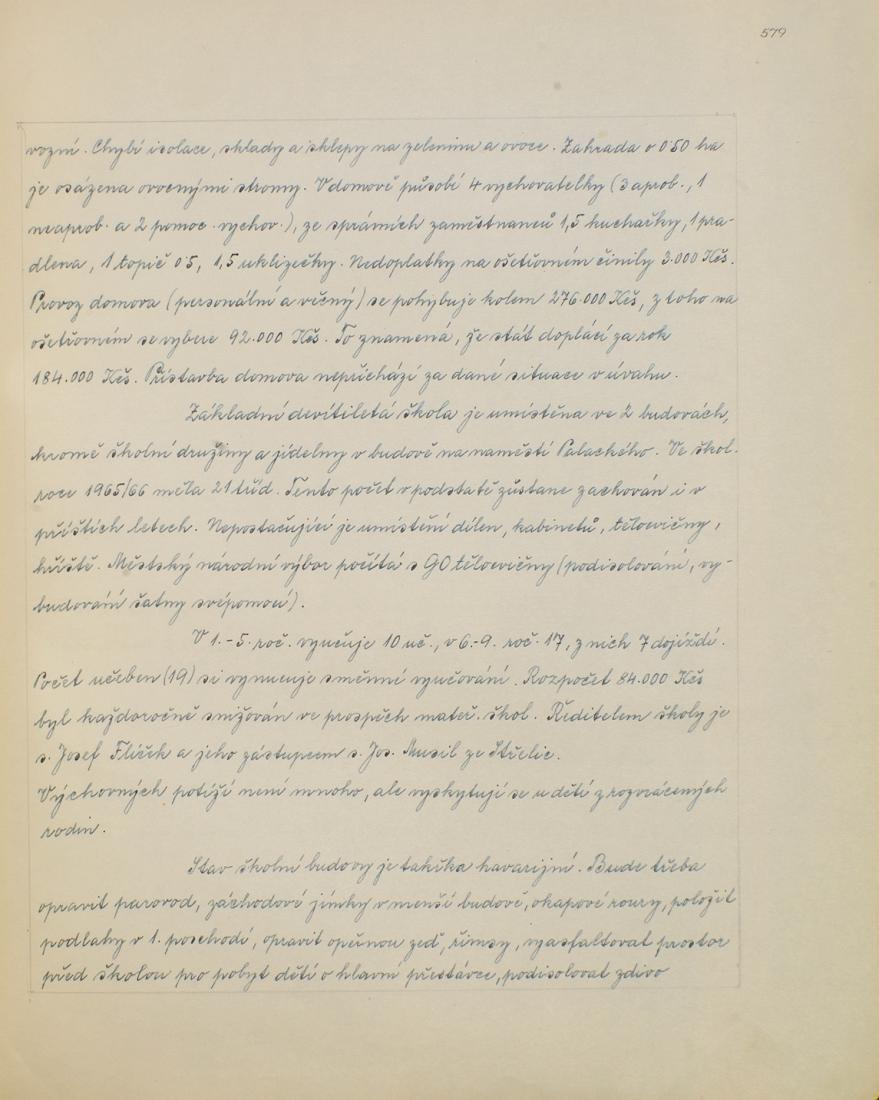 579
vozní. Chybí isolace, sklady a sklepy na zeleninu a ovoce. Zahrada o 0˙50 ha
je osázena ovocnými stromy. V domově působí 4 vychovatelky (3 aprob., 1
neaprob. a 2 pomoc. vychov.), ze správních zaměstnanců 1,5 kuchařky, 1 pra-
dlena, 1 topič 0˙5, 1,5 uklizečky. Nedoplatky na ošetřovném činily 3.000 Kčs.
Provoz domova (personální a věcný) se pohybuje kolem 276.000 Kčs, z toho na
ošetřovném se vybere 92.000 Kčs. To znamená, že stát doplácí za rok
184.000 Kčs. Přístavba domova nepřichází za dané situace v úvahu.
Základní devítiletá škola je umístěna ve 2 budovách,
kromě školní družiny a jídelny v budově na náměstí Palackého. Ve škol.
roce 1965/66 měla 21 tříd. Tento počet v podstatě zůstane zachován i v
příštích letech. Nepostačující je umístění dílen, kabinetů, tělocvičny,
hřiště. Městský národní výbor počítá s GO tělocvičny (podisolování, vy-
budování šatny svépomocí).
V 1.-5. roč. vyučuje 10 uč., v 6.-9. roč. 17, z nich 7 dojíždí.
Počet učeben (19) si vynucuje směnné vyučování. Rozpočet 84.000 Kčs
byl každoročně snižován ve prospěch mateř. škol. Ředitelem školy je
s. Josef Flíček a jeho zástupcem s. Jos. Musil ze Střelic.
Výchovných potíží není mnoho, ale vyskytují se u dětí z rozvrácených
rodin.
Stav školní budovy je takřka havarijní. Bude třeba
opravit parovod, záchodové jímky v menší budově, okapové roury, položit
podlahy v 1. poschodí, opravit opěrnou zeď, římsy, vyasfaltovat prostor
před školou pro pobyt dětí o hlavní přestávce, podisolovat zdivo